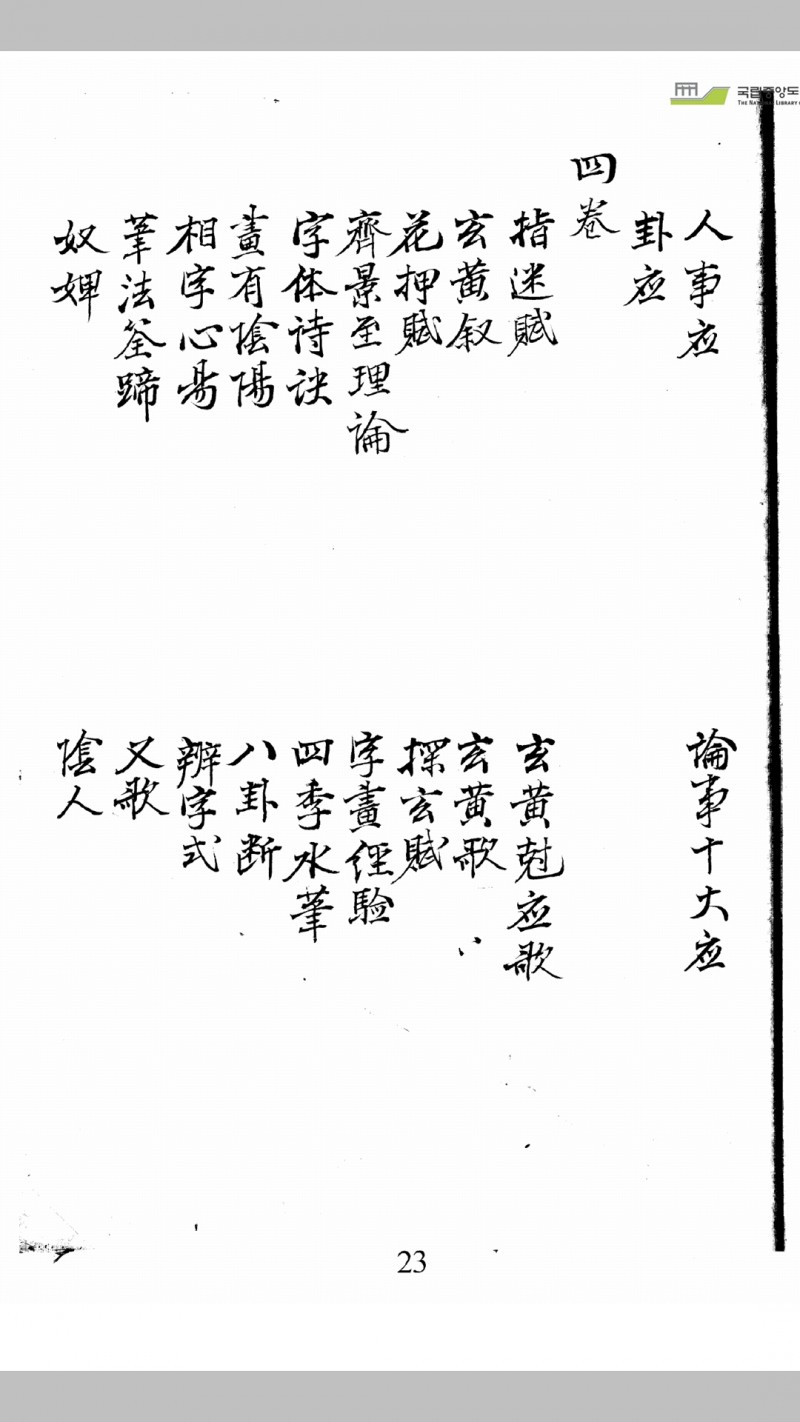 국립중앙도
THE NATIONAL LIBRARY
人事应 論事十大应
卦应
四卷
指迷賦 玄黃尅应歌
玄黃叙 玄黃歌
花押賦 探玄賦
齊景至理論 字畫經驗
字体诗诀 四季水筆
畫有陰陽 八卦断
相字心易 辨字式
筆法筌蹄 又歌
奴婢 陰人
23